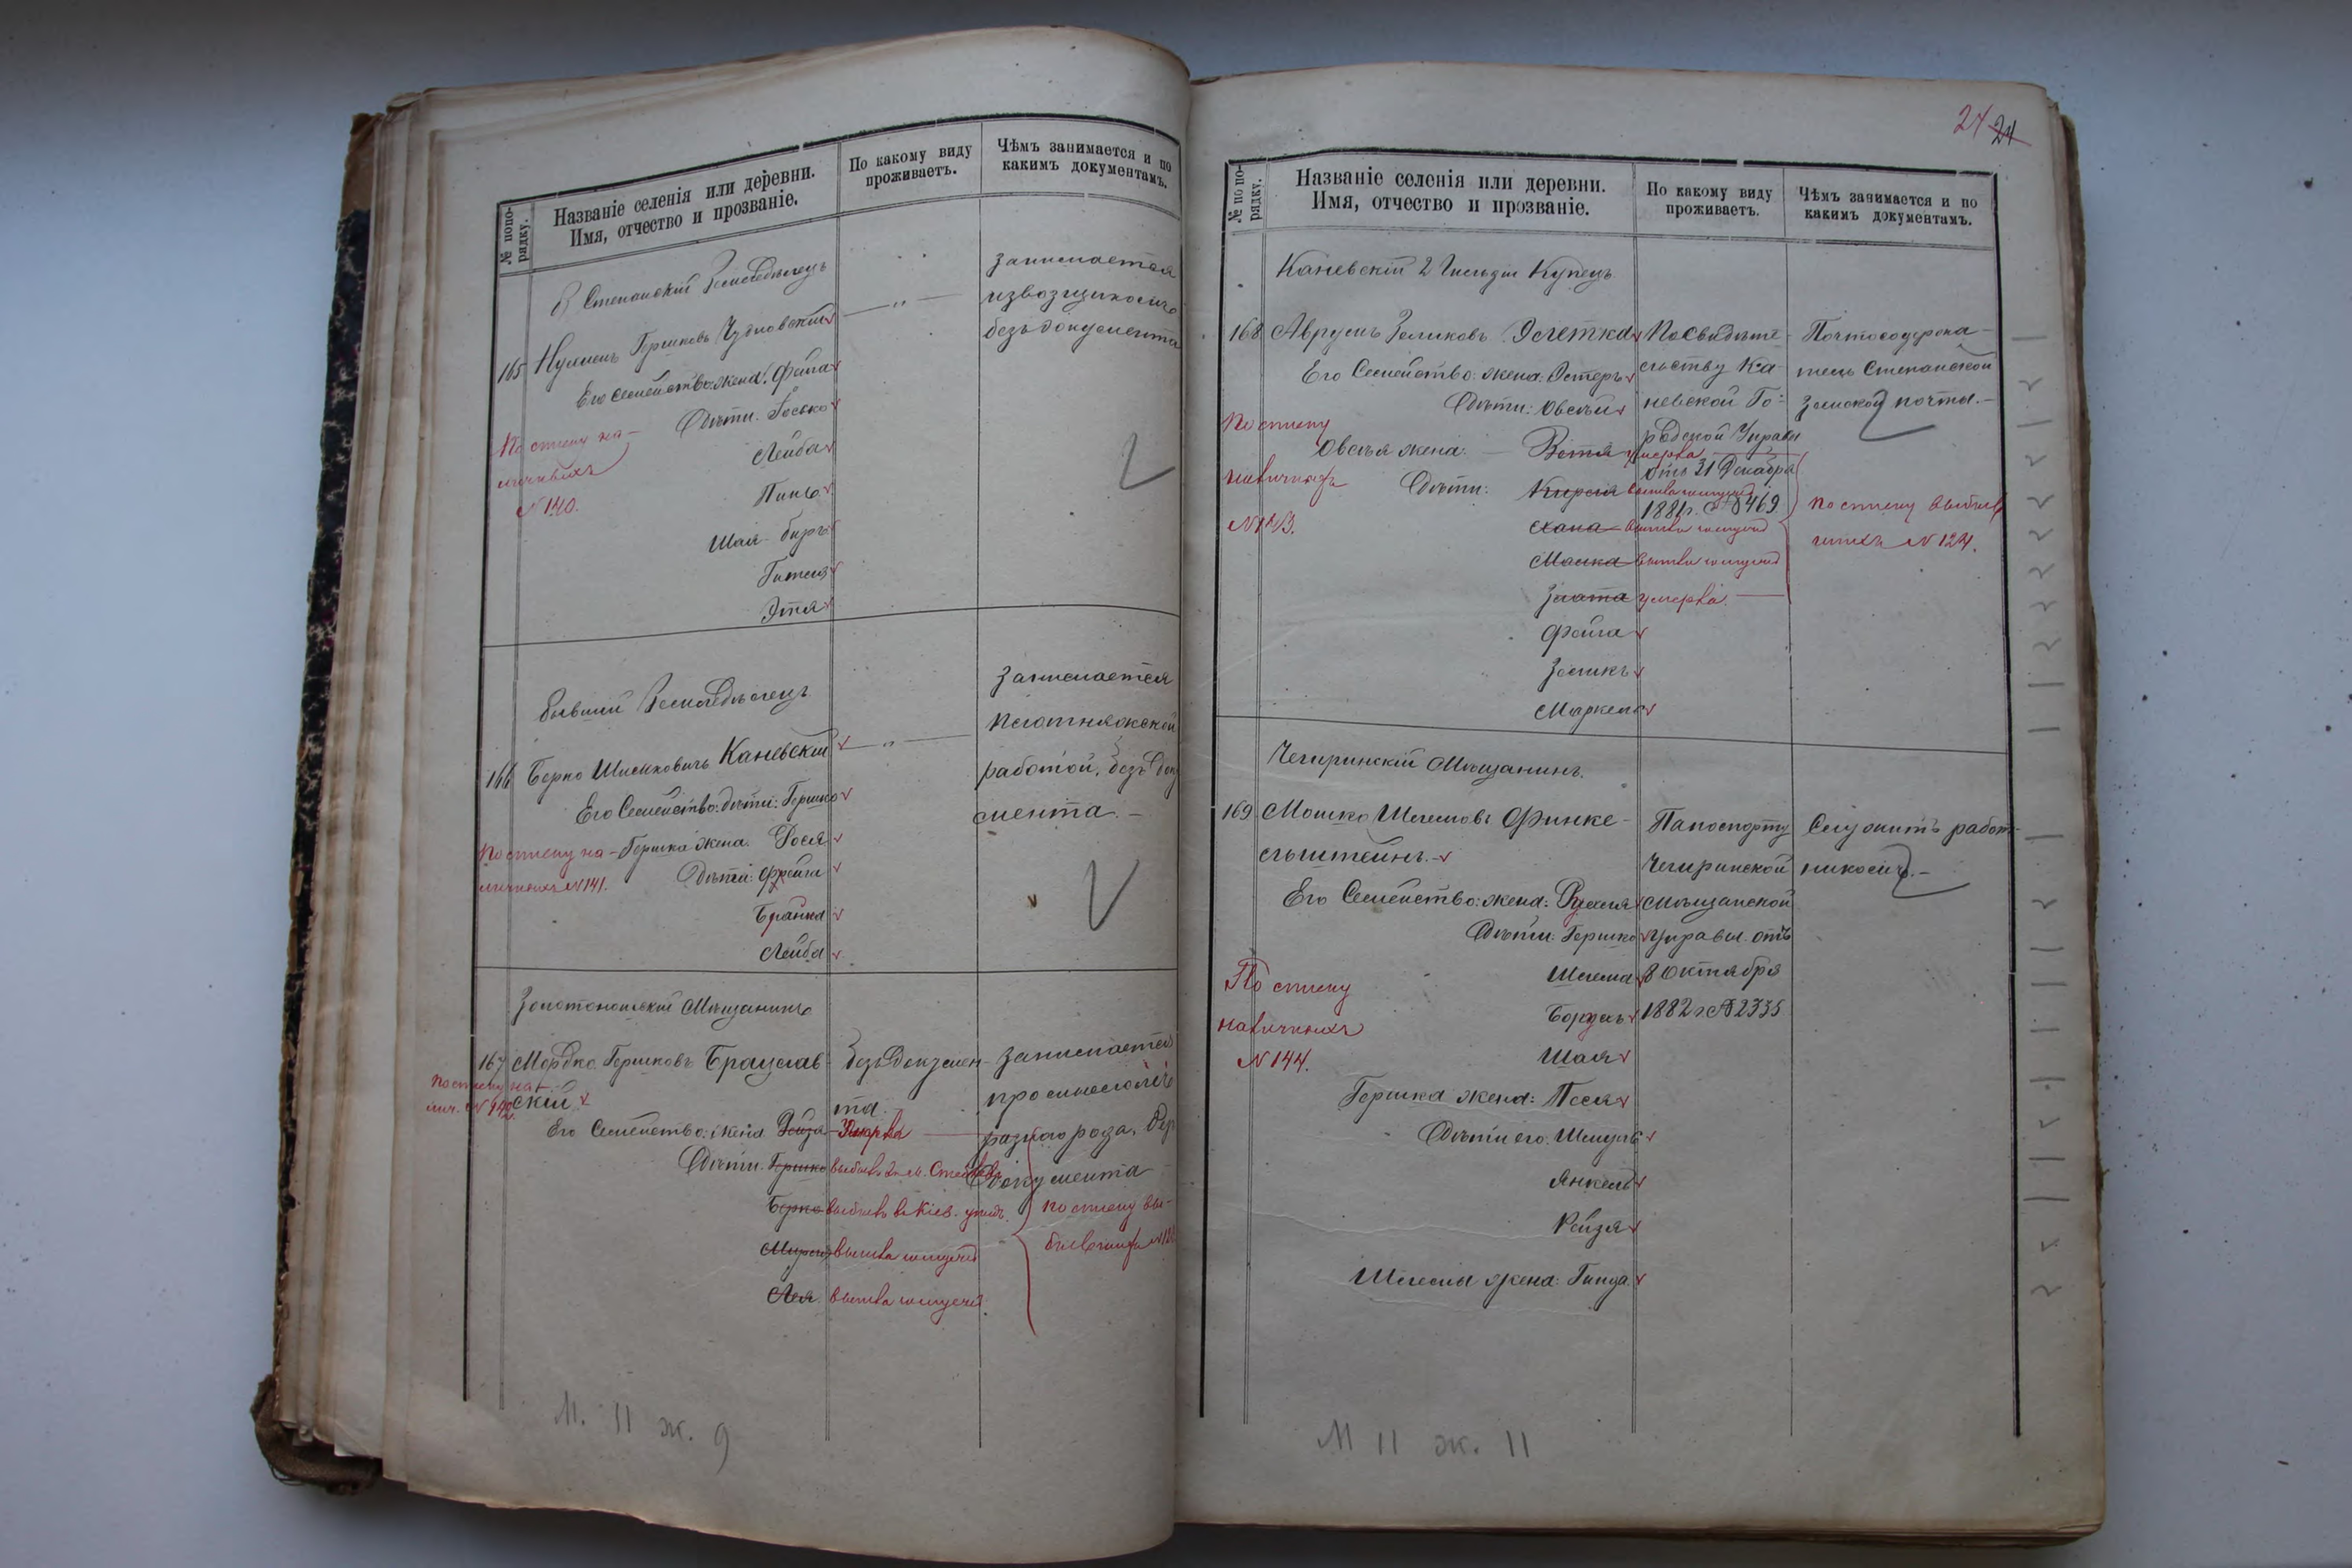 № попо-
рядку.
Названіе селенія или деревни.
Имя, отчество и прозваніе.
По какому виду
проживаетъ.
Чѣмъ занимается и по
какимъ документамъ.
Степанскій Земледѣлецъ
165 Нухимъ Гершковъ Чудновскій
Его Семейство: жена: Фейга
Дѣти: Іосько
Лейба
Пинь
Шая-беръ
Гитля
Этя
занимается
извозщикомъ
безъ документа
По списку на-
личныхъ
№ 140.
Бывшій Земледѣлецъ
166 Берко Шмилковичъ Каневскій
Его Семейство: дѣти: Гершко
Гершка жена: Фося
Дѣти: Фрейга
Бранна
Лейба
занимается
работой, безъ доку
мента. —
По списку на-
личныхъ № 141.
Золотоношскій Мѣщанинъ
167 Мордко Гершковъ Брацлав-
скій
Его Семейство: жена Рейзя Умерла
Дѣти: Гершко выбылъ въ м.
Берко выбылъ въ Кіев. уѣздъ.
Мирля вышла замужъ
Лея вышла замужъ
безъ докумен-
та.
занимается
промысломъ
разнаго рода, безъ
документа
По списку на-
лич. № 142.
по списку вы-
бывшихъ №
М. 11 ж. 9
24 24
№ по по-
рядку.
Названіе селенія или деревни.
Имя, отчество и прозваніе.
По какому виду
проживаетъ.
Чѣмъ занимается и по
какимъ документамъ.
Каневскій 2 Гильдіи Купецъ
168 Аврумъ Зеликовъ
Его Семейство: жена: Эстеръ
Дѣти: Овсѣй
Овсѣя жена: умерла
Дѣти: вышла замужъ
Хана вышла замужъ
Малка вышла замужъ
Злата умерла
Фейга
Зеликъ
По свидѣте-
льству Ка-
невской Го-
родской Управы
отъ 31 Декабря
1881 г. № 469
Почтосодержа-
тель Степанской
земской почты. —
По списку
наличныхъ
№ 143.
по списку выбыв-
шихъ № 124.
Чегиринскій Мѣщанинъ.
169 Мошко Шлемовъ Финке-
льштейнъ. —
Его Семейство: жена: Рухля
Дѣти: Гершко
Шлема
Борухъ
Шая
Гершка жена: Песя
Дѣти его: Шмуль
Янкель
Рейзя
Шлемы жена: Гинда
Паспорту
Чегиринской
Мѣщанской
Управы отъ
8 Октября
1882 г. № 2335
Служитъ работ-
никомъ. —
По списку
наличныхъ
№ 144.
М 11 ж. 11